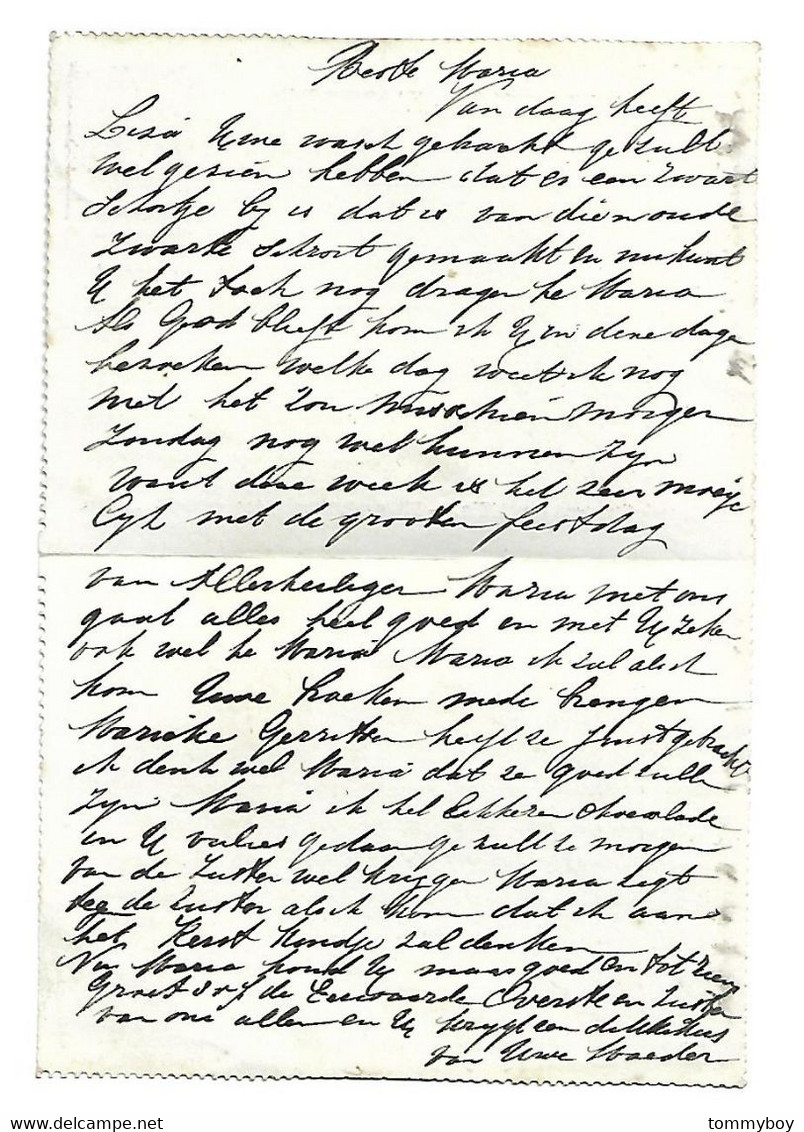 Beste Maria
Van daag heeft
Lisa Uwe wasch gebracht ge zult
wel gezien hebben dat er een zwart
schortje by is dat is van dien oude
zwarte schort gemaakt en nu kunt
U het toch nog dragen he Maria
Als God blieft kom ik U in deze dage
bezoeken welke dag weet ik nog
niet het zou misschien morgen
Zondag nog wel kunnen zyn
want deze week is het zeer moeije
lyk met de grooten feestdag
van Allerheiligen Maria met ons
gaat alles heel goed en met U zeker
ook wel he Maria Maria ik zal als ik
kom Uwe mede brengen
Marieke Gerritsen heeft ze juist gebracht
ik denk wel Maria dat ze goed zulle
zyn Maria ik heb lekkere chocolade
in U valies gedaan ge zult ze morgen
van de Zuster wel krygen Maria zegt
teg de Zuster als ik kom dat ik aan
het Kerst Kindje zal denken
Nu Maria houd U maar goed en tot zien
Groet de Eerwaarde Overste en Zuster
van ons allen en U krygt een dikke kus
van Uwe Moeder
www.delcampe.net
tommyboy